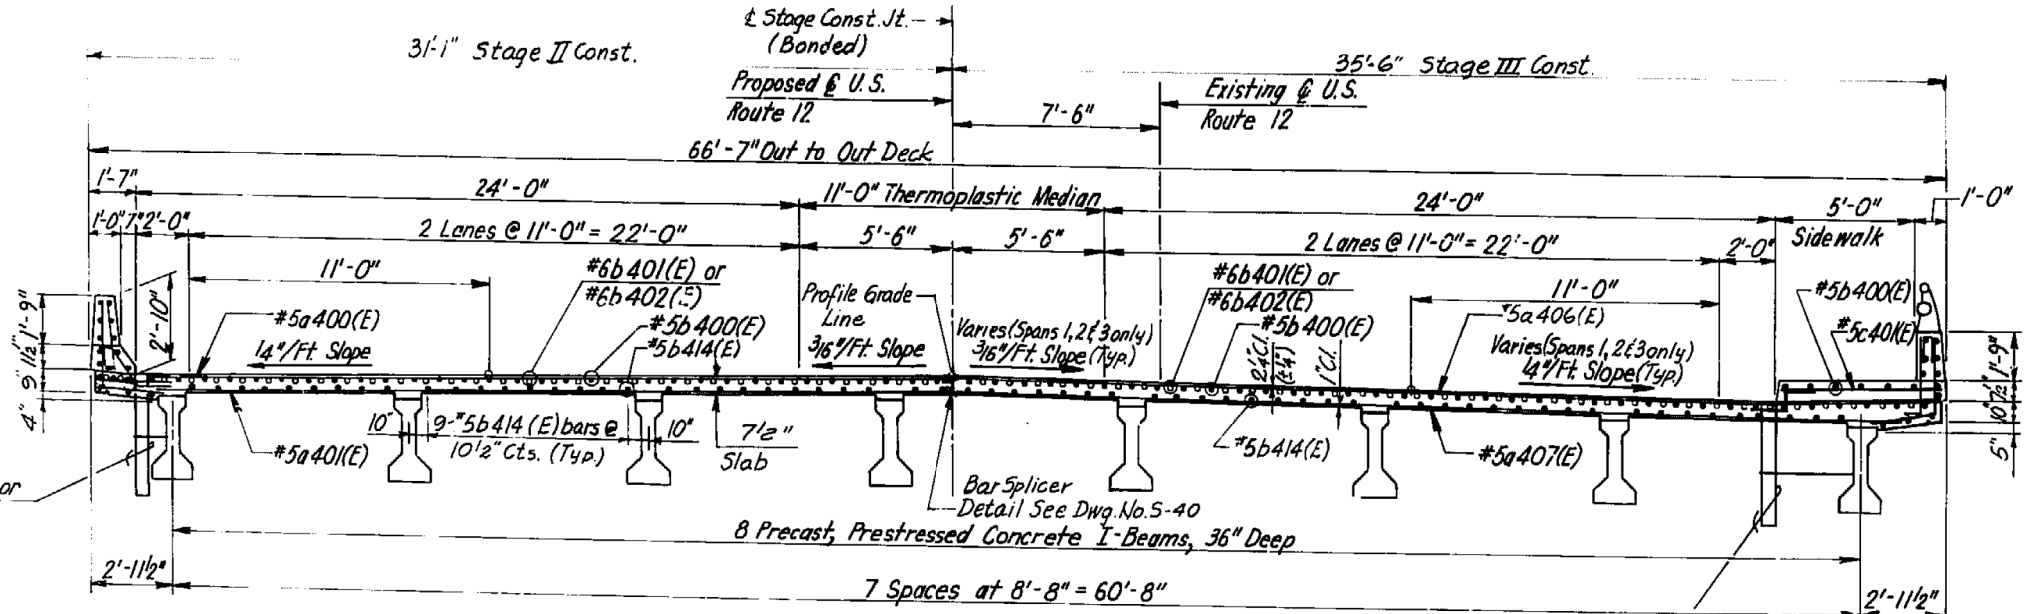 ₵ Stage Const. Jt.
(Bonded)
31'-1" Stage II Const.
35'-6" Stage III Const.
Proposed ₵ U.S.
Route 12
Existing ₵ U.S.
Route 12
7'-6"
66'-7" Out to Out Deck
1'-7"
24'-0"
11'-0" Thermoplastic Median
24'-0"
5'-0"
1'-0"
1'-0"
7"
2'-0"
2 Lanes @ 11'-0" = 22'-0"
5'-6"
5'-6"
2 Lanes @ 11'-0" = 22'-0"
2'-0"
Sidewalk
11'-0"
#6b401(E) or
#6b402(E)
Profile Grade
Line
#6b401(E) or
#6b402(E)
11'-0"
#5b400(E)
2'-10"
1'-9"
11½"
9"
4"
#5a400(E)
#5b400(E)
#5b414(E)
Varies (Spans 1, 2 & 3 only)
3/16"/Ft. Slope (Typ.)
#5b400(E)
#5a406(E)
#5c401(E)
1/4"/Ft. Slope
3/16"/Ft. Slope
2¼" Cl.
(±¼")
1" Cl.
Varies (Spans 1, 2 & 3 only)
1/4"/Ft. Slope (Typ.)
1'-9"
7½"
10"
5"
10"
9-#5b414 (E) bars @
10½" Cts. (Typ.)
10"
7½"
Slab
#5a401(E)
#5b414(E)
#5a407(E)
or
Bar Splicer
Detail See Dwg. No. S-40
8 Precast, Prestressed Concrete I-Beams, 36" Deep
2'-11½"
7 Spaces at 8'-8" = 60'-8"
2'-11½"